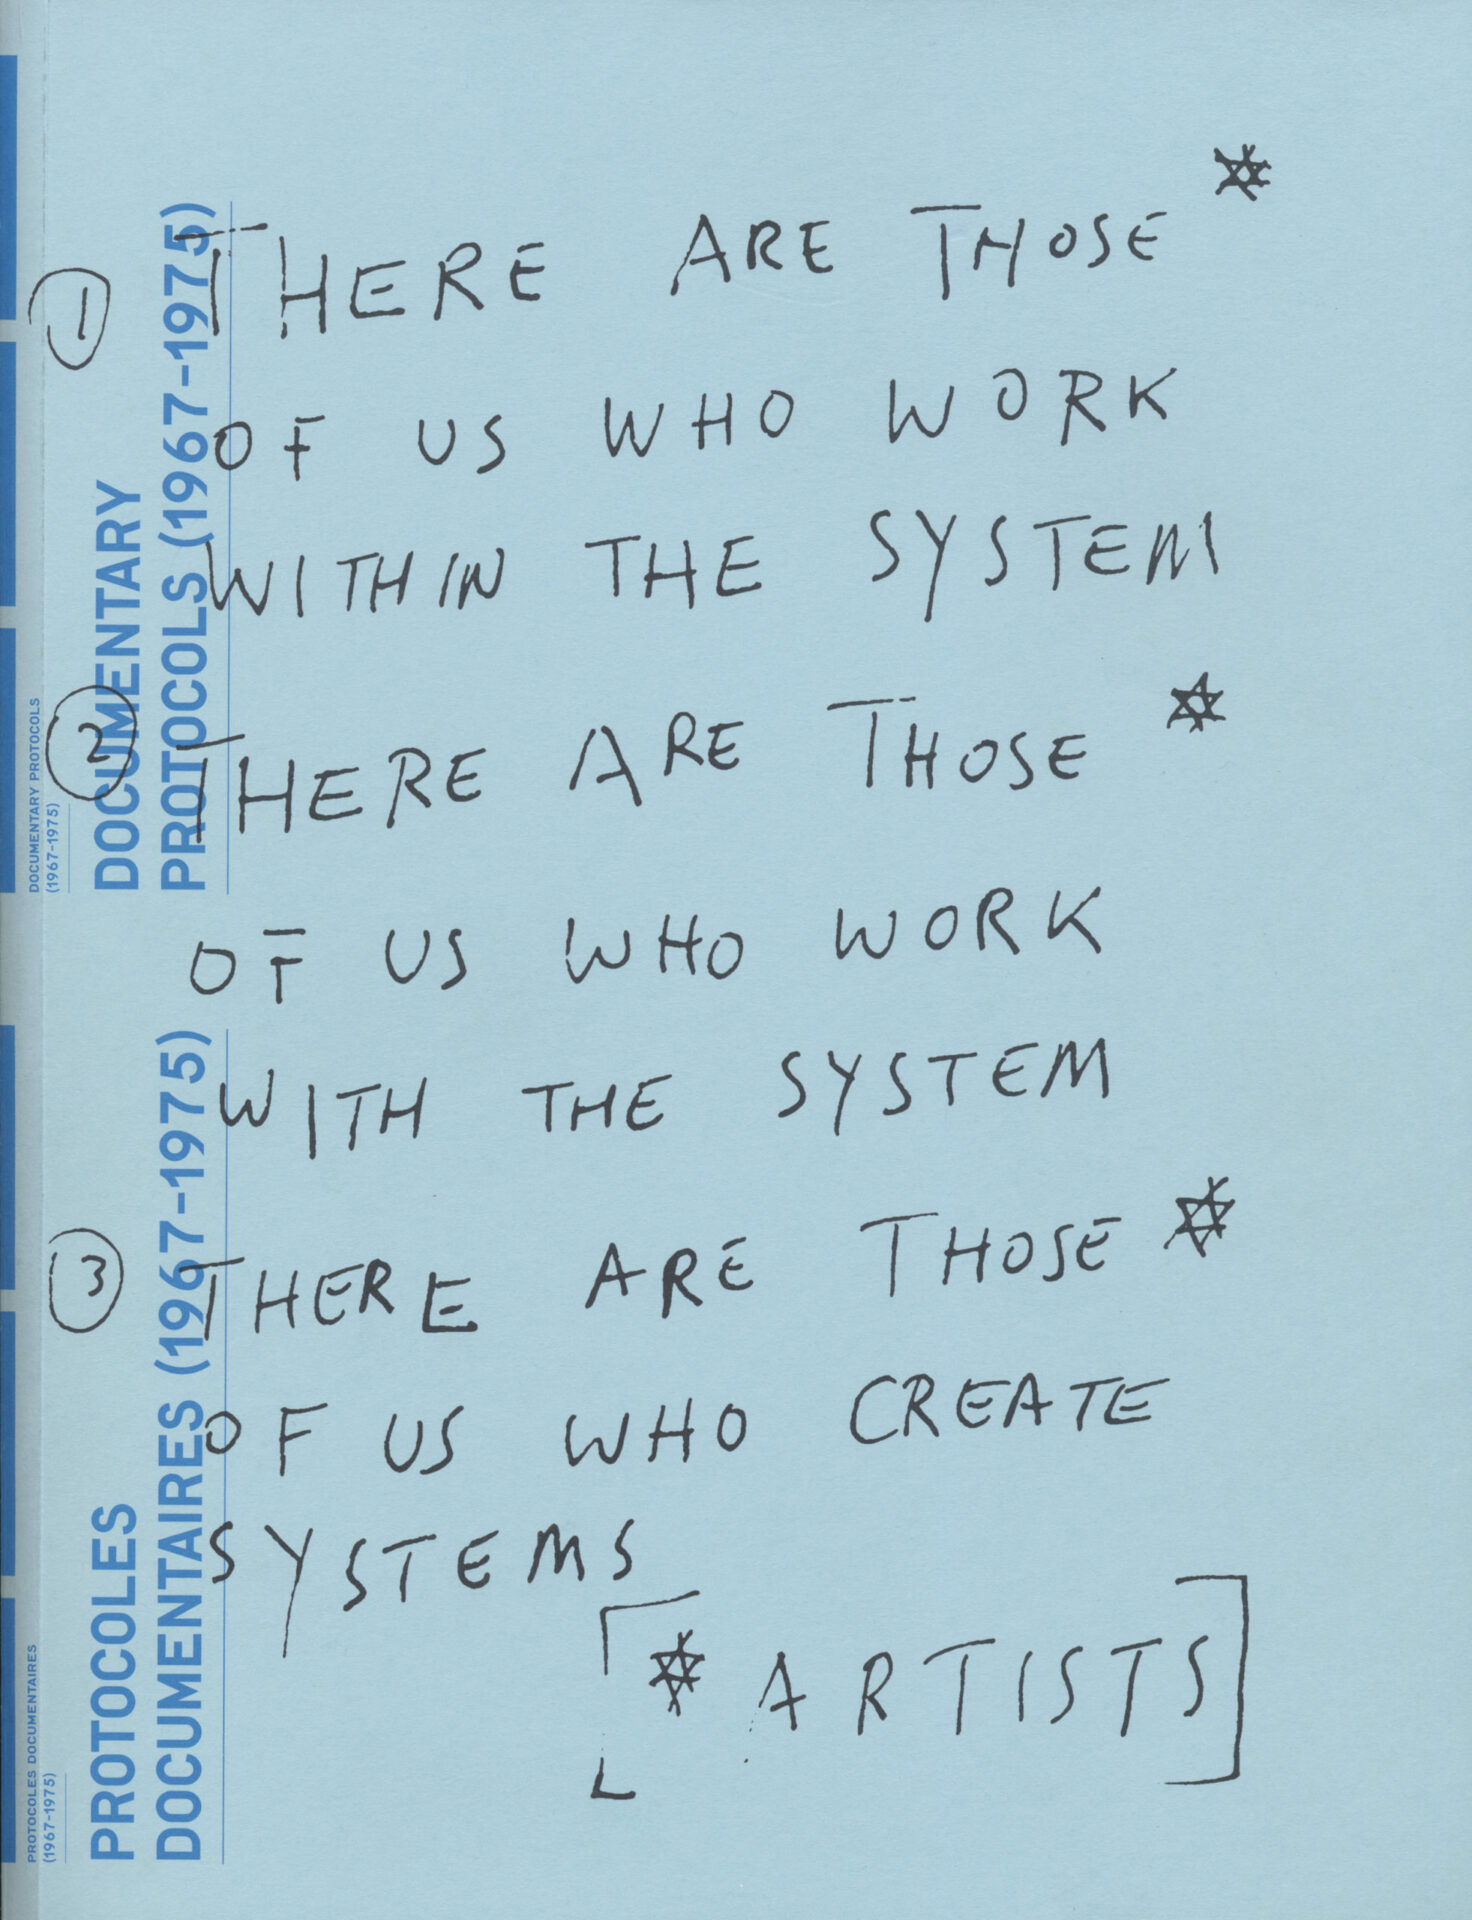 ① THERE ARE THOSE *
OF US WHO WORK
WITHIN THE SYSTEM
② THERE ARE THOSE *
OF US WHO WORK
WITH THE SYSTEM
③ THERE ARE THOSE *
OF US WHO CREATE
SYSTEMS
[* ARTISTS]
DOCUMENTARY
PROTOCOLS (1967-1975)
PROTOCOLES
DOCUMENTAIRES (1967-1975)
DOCUMENTARY PROTOCOLS
(1967-1975)
PROTOCOLES DOCUMENTAIRES
(1967-1975)